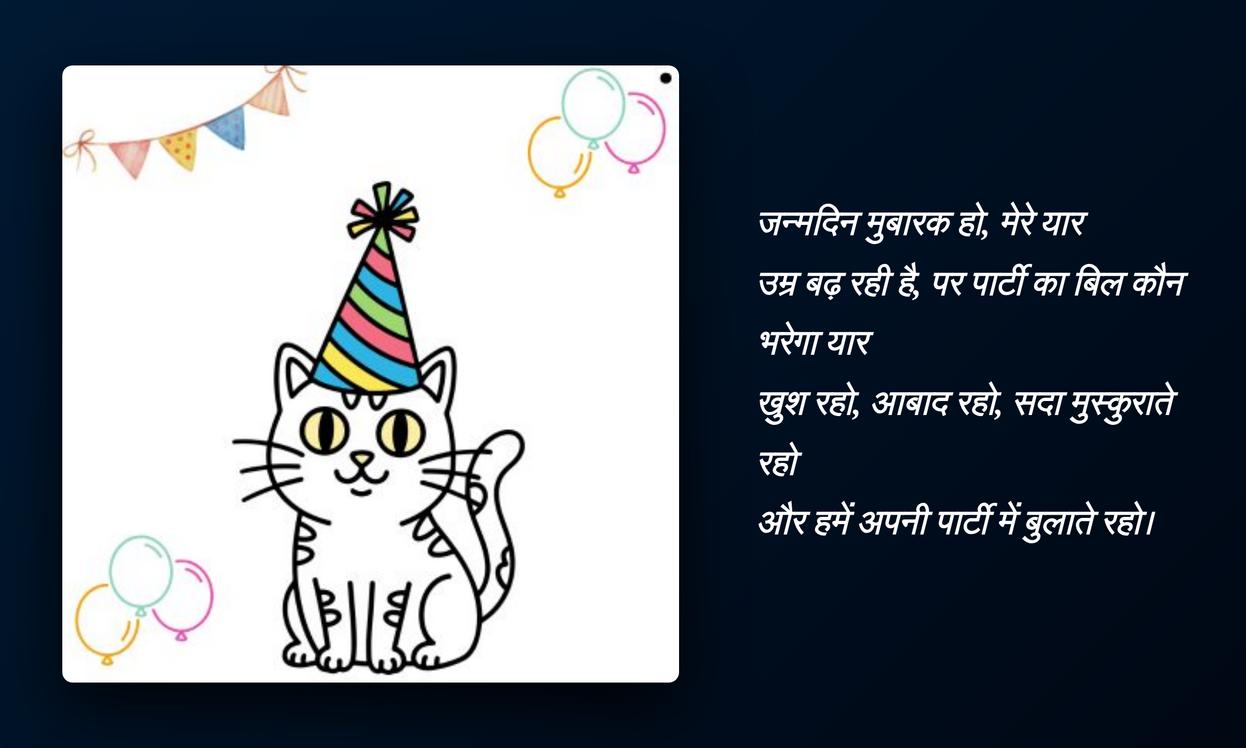 जन्मदिन मुबारक हो, मेरे यार
उम्र बढ़ रही है, पर पार्टी का बिल कौन
भरेगा यार
खुश रहो, आबाद रहो, सदा मुस्कुराते
रहो
और हमें अपनी पार्टी में बुलाते रहो।